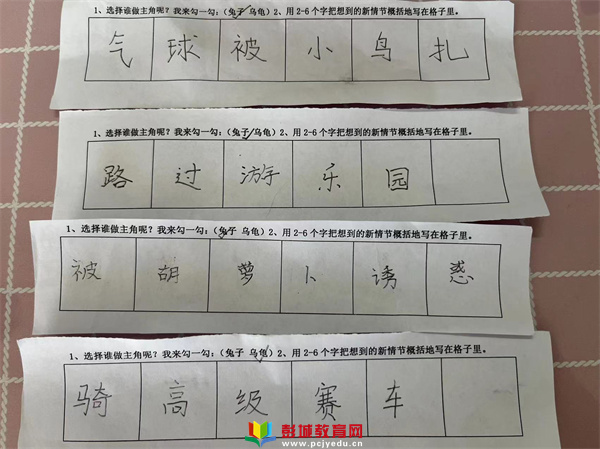 1、选择谁做主角呢？我来勾一勾：（兔子 乌龟）2、用2-6个字把想到的新情节概括地写在格子里。
气球被小鸟扎
1、选择谁做主角呢？我来勾一勾：（兔子 乌龟）2、用2-6个字把想到的新情节概括地写在格子里。
路过游乐园
1、选择谁做主角呢？我来勾一勾：（兔子 乌龟）2、用2-6个字把想到的新情节概括地写在格子里。
被胡萝卜诱惑
1、选择谁做主角呢？我来勾一勾：（兔子 乌龟）2、用2-6个字把想到的新情节概括地写在格子里。
骑高级赛车
彭城教育网
www.pcjyedu.cn